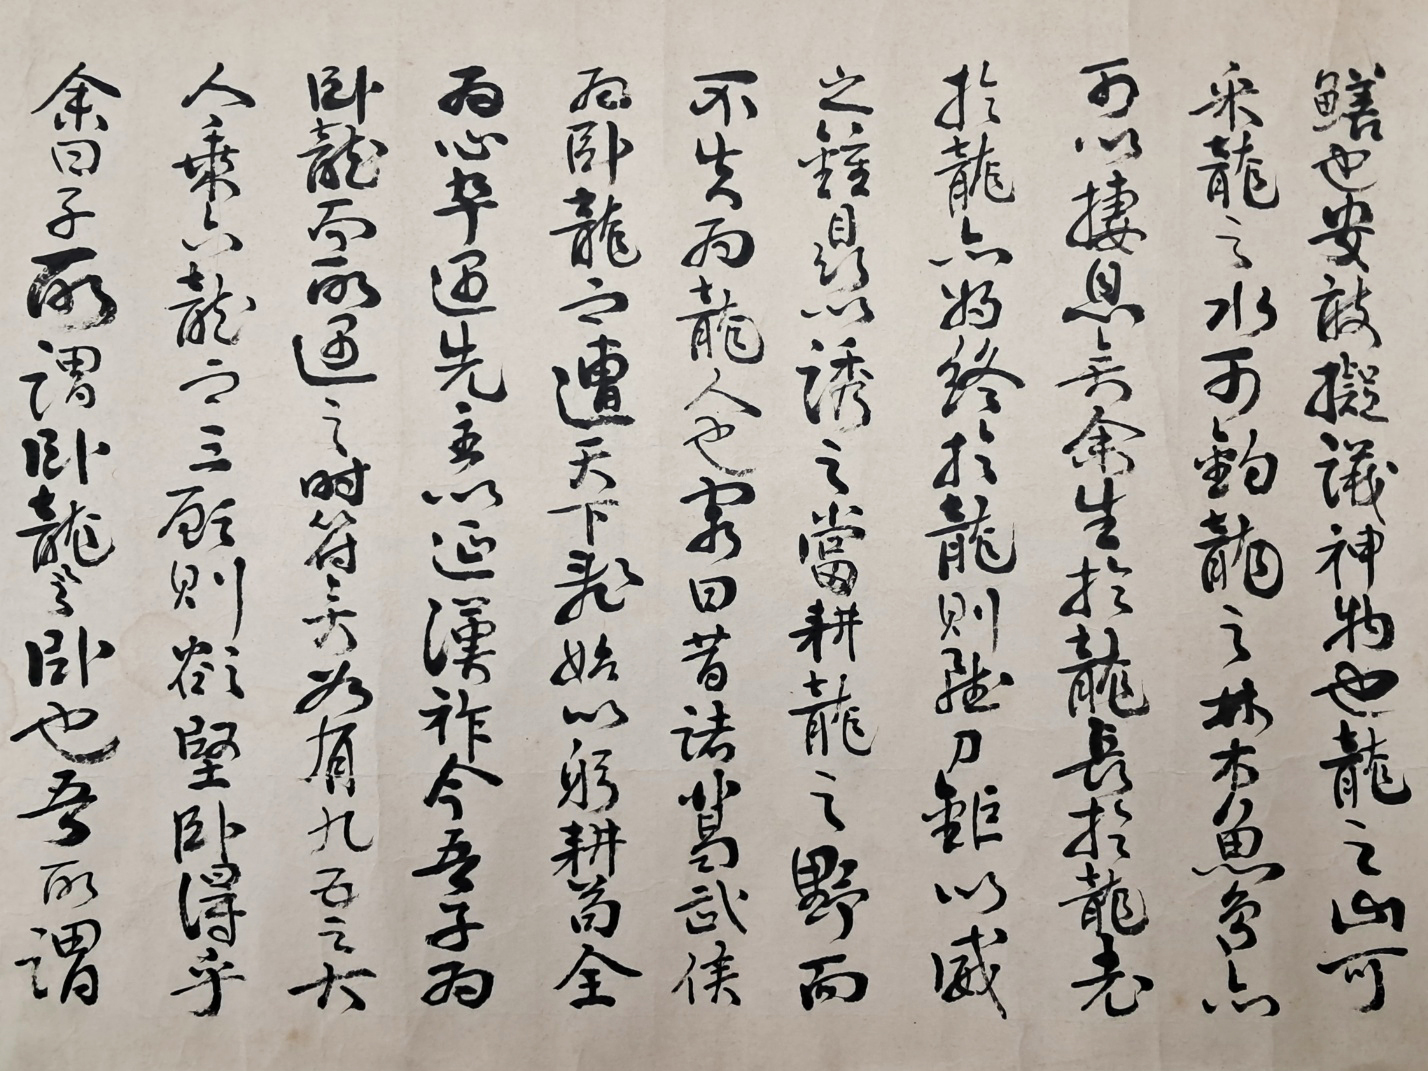 鱔也安敢擬議神物也龍之山可
采龍之水可釣龍之林木魚鳥亦
可以棲息矣余生於龍長於龍老
於龍亦將終於龍則雖刀鉅以威
之鐘鼎以誘之當耕龍之野而
不失為龍人也客曰昔諸葛武侯
為臥龍之遭天下亂始以躬耕苟全
為心卒遇先主以延漢祚今吾子為
臥龍而所遇之時符矣如有九五之大
人乘六龍之三顧則欲堅臥得乎
余曰子所謂臥龍者臥也吾所謂